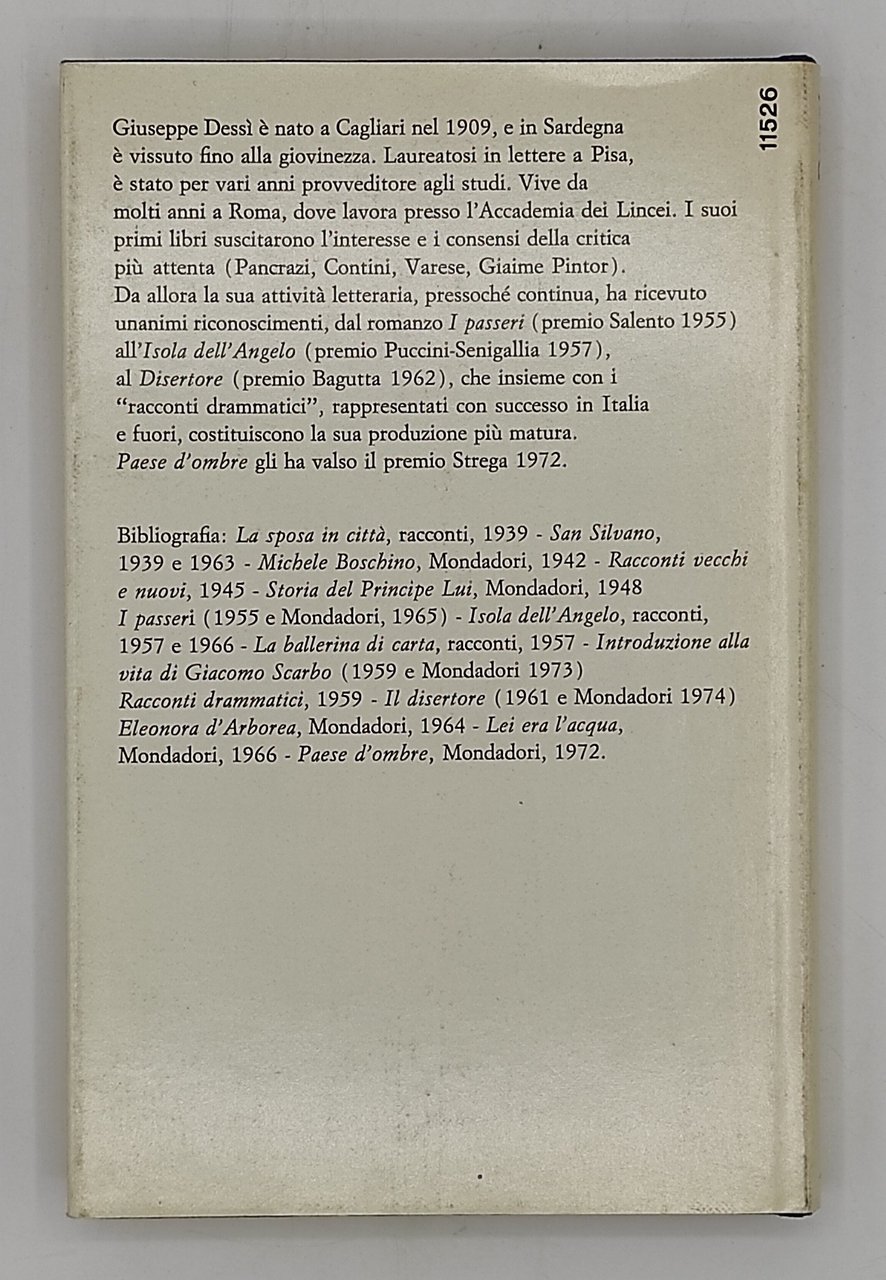 11526
Giuseppe Dessì è nato a Cagliari nel 1909, e in Sardegna
è vissuto fino alla giovinezza. Laureatosi in lettere a Pisa,
è stato per vari anni provveditore agli studi. Vive da
molti anni a Roma, dove lavora presso l'Accademia dei Lincei. I suoi
primi libri suscitarono l'interesse e i consensi della critica
più attenta (Pancrazi, Contini, Varese, Giaime Pintor).
Da allora la sua attività letteraria, pressoché continua, ha ricevuto
unanimi riconoscimenti, dal romanzo I passeri (premio Salento 1955)
all'Isola dell'Angelo (premio Puccini-Senigallia 1957),
al Disertore (premio Bagutta 1962), che insieme con i
“racconti drammatici”, rappresentati con successo in Italia
e fuori, costituiscono la sua produzione più matura.
Paese d'ombre gli ha valso il premio Strega 1972.
Bibliografia: La sposa in città, racconti, 1939 - San Silvano,
1939 e 1963 - Michele Boschino, Mondadori, 1942 - Racconti vecchi
e nuovi, 1945 - Storia del Principe Lui, Mondadori, 1948
I passeri (1955 e Mondadori, 1965) - Isola dell'Angelo, racconti,
1957 e 1966 - La ballerina di carta, racconti, 1957 - Introduzione alla
vita di Giacomo Scarbo (1959 e Mondadori 1973)
Racconti drammatici, 1959 - Il disertore (1961 e Mondadori 1974)
Eleonora d'Arborea, Mondadori, 1964 - Lei era l'acqua,
Mondadori, 1966 - Paese d'ombre, Mondadori, 1972.